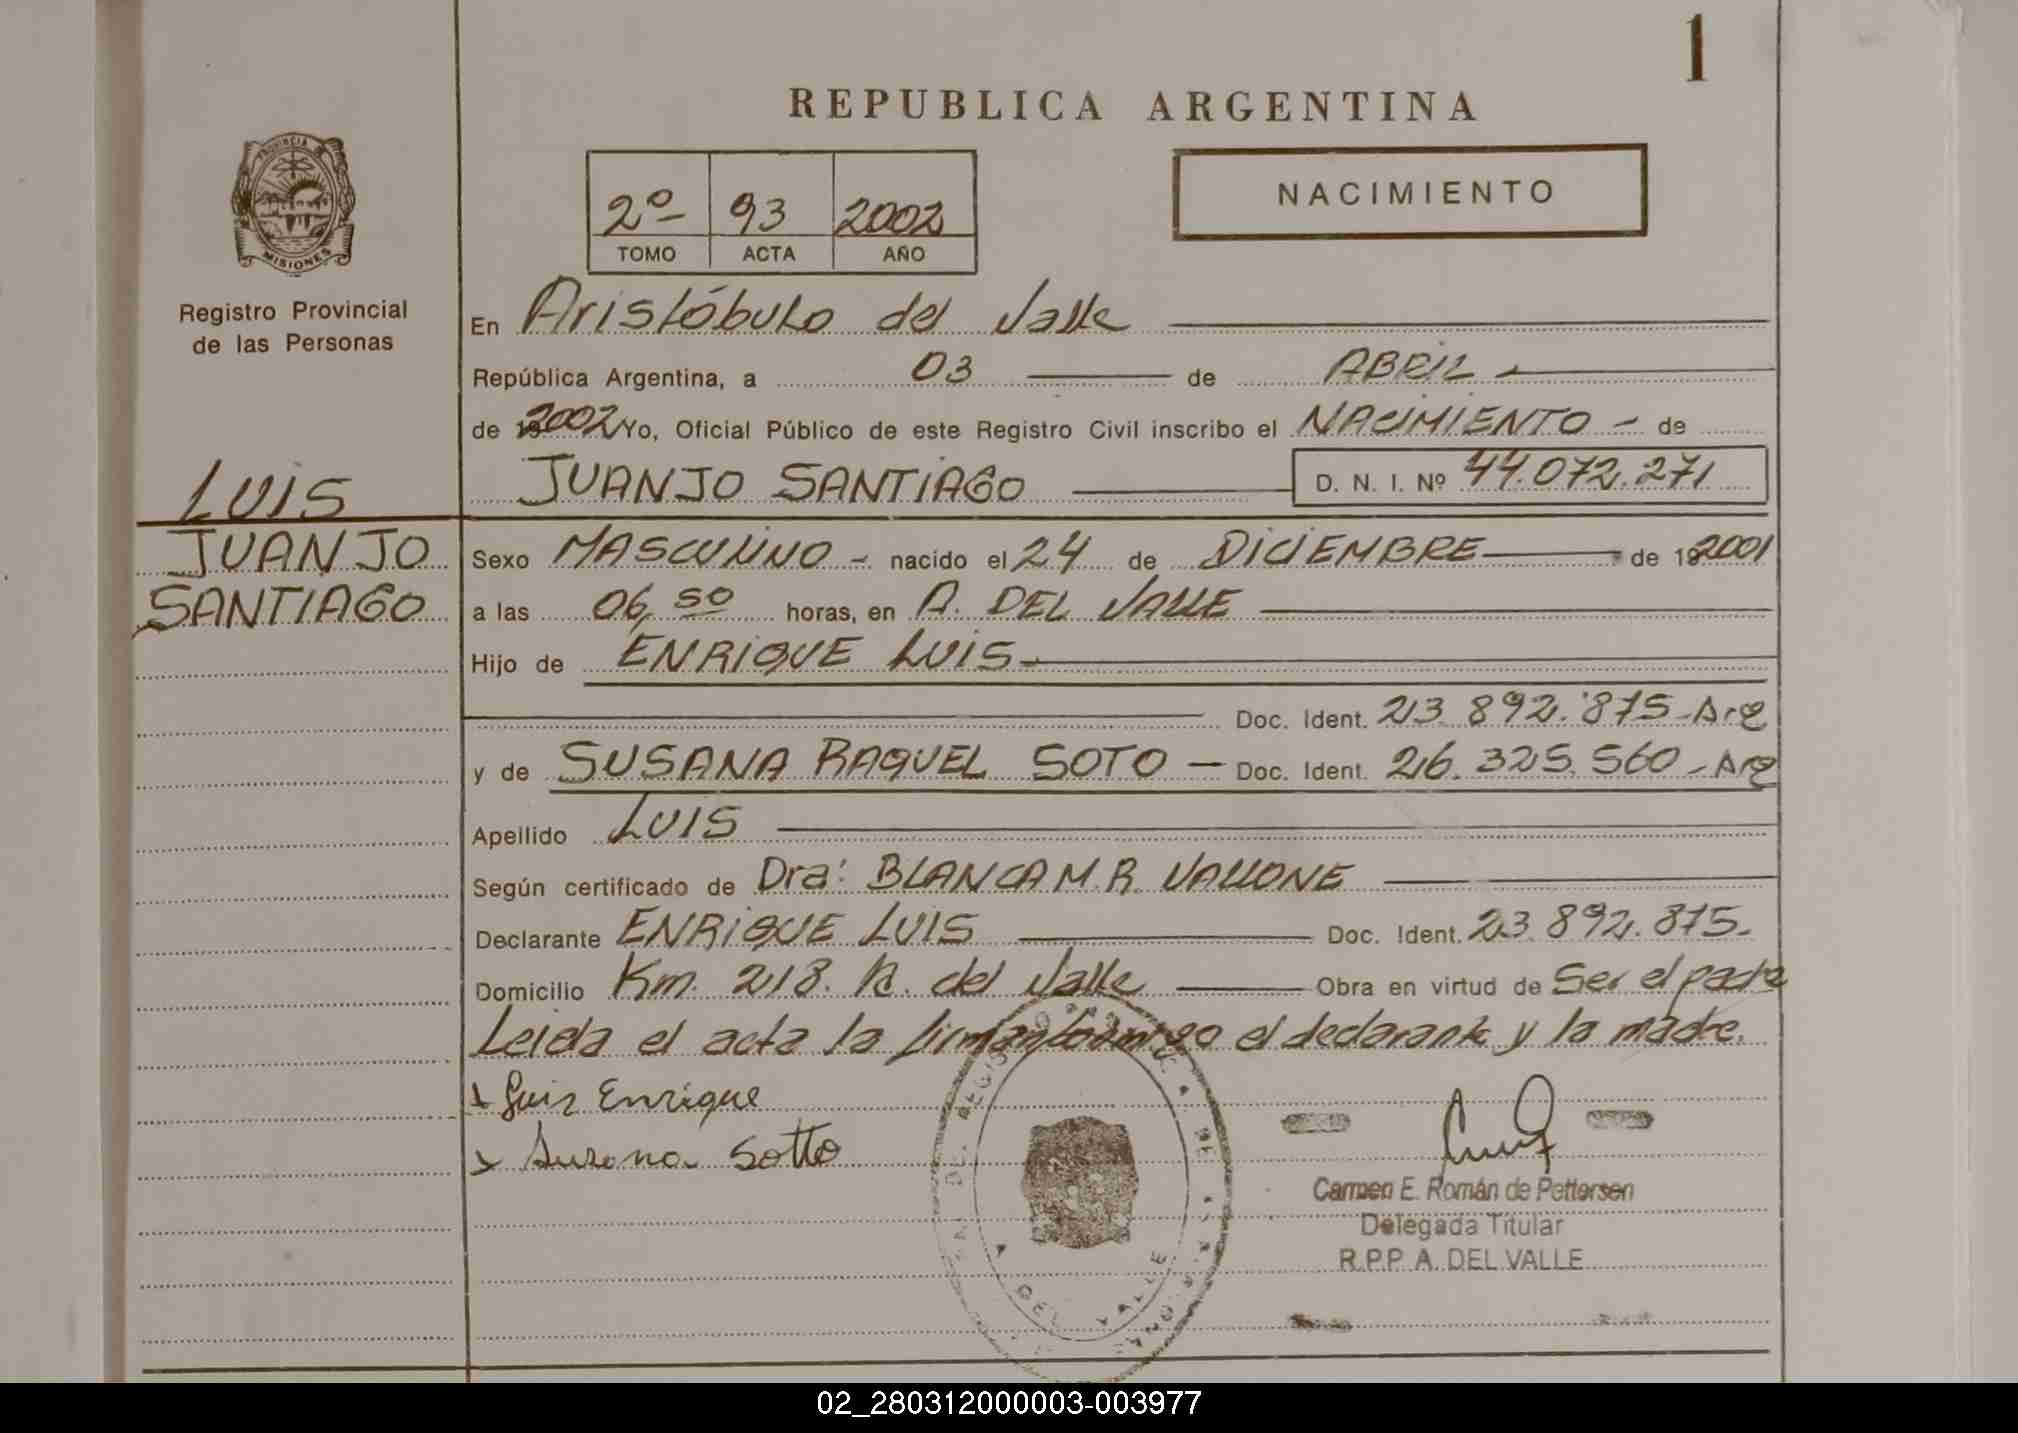 1
REPUBLICA ARGENTINA
PROVINCIA DE
MISIONES
Registro Provincial
de las Personas
2º 93 2002
TOMO ACTA AÑO
NACIMIENTO
En Aristóbulo del Valle
República Argentina, a 03 de ABRIL
de 192002 Yo, Oficial Público de este Registro Civil inscribo el NACIMIENTO - de
JUANJO SANTIAGO D. N. I. Nº 44.072.271
LUIS
JUANJO
SANTIAGO
Sexo MASCULINO - nacido el 24 de DICIEMBRE de 192001
a las 06,50 horas, en A. DEL VALLE
Hijo de ENRIQUE LUIS-
Doc. Ident. 23.892.875-Arg
y de SUSANA RAQUEL SOTO - Doc. Ident. 26.325.560-Arg
Apellido LUIS
Según certificado de Dra: BLANCA M. R. VALLONE
Declarante ENRIQUE LUIS Doc. Ident. 23.892.875.
Domicilio Km. 218. A. del Valle Obra en virtud de Ser el padre
Leida el acta la firman conmigo el declarante y la madre.
x Luis Enrique
x Susana Sotto
Carmen E. Román de Pettersen
Delegada Titular
R.P.P. A. DEL VALLE
DEL VALLE
02_280312000003-003977